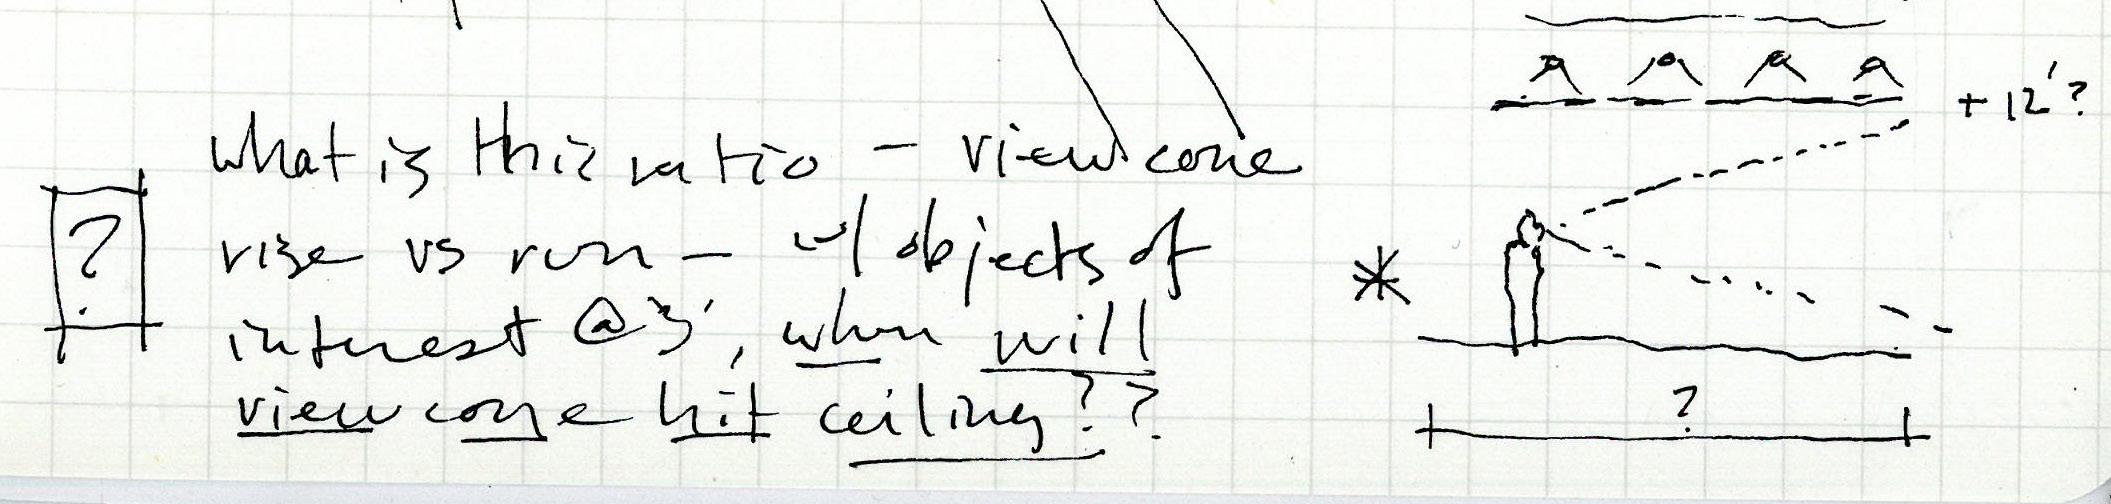 +12'?
what is this ratio - view cone
?
rise vs run - w/ objects of
interest @ 3', when will
view cone hit ceiling??
?